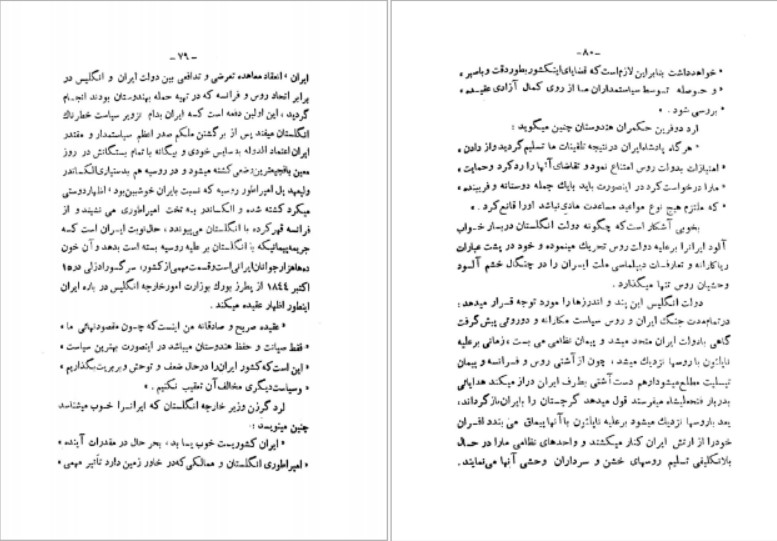 ـ ۷۹ ـ
ایران » انعقاد معاهده تعرضی و تدافعی بین دولت ایران و انگلیس در
برابر اتحاد روس و فرانسه که در تهیه حمله بهندوستان بودند انجام
گردید ، این اولین دفعه است که ایران بدام تزویر سیاست خطرناك
انگلستان میفتد پس از برگشتن ملکم صدر اعظم سیاستمدار و مقتدر
ایران اعتماد الدوله بدسایس خودی و بیگانه با تمام بستگانش در روز
معین بافجیعترین وضعی کشته میشود و در روسیه هم بدستیاری الکساندر
ولیعهد پل امپراطور روسیه که نسبت بایران خوشبین بود ، اظهار دوستی
میکرد کشته شده و الکساندر به تخت امپراطوری می نشیند و از
فرانسه قهر کرده با انگلستان می پیوندد ، حال نوبت ایران است که
جریمه پیمانیکه با انگلستان بر علیه روسیه بسته است بدهد و آن خون
ده ها هزار جوانان ایرانی است و قسمت مهمی از کشور، سرگوراوزلی در ۱۵
اکتبر ۱۸۴۴ از پطرز بورك بوزارت امور خارجه انگلیس در باره ایران
اینطور اظهار عقیده میکند .
« عقیده صریح و صادقانه من اینست که چون مقصود نهائی ما »
« فقط صیانت و حفظ هندوستان میباشد در اینصورت بهترین سیاست »
« این است که کشور ایران را در حال ضعف و توحش و بربریت بگذاریم »
« و سیاست دیگری مخالف آن تعقیب نکنیم . »
لرد گرزن وزیر خارجه انگلستان که ایران را خوب میشناسد
چنین مینویسد :
« ایران کشوریست خوب یا بد ، بهر حال در مقدرات آینده »
« امپراطوری انگلستان و ممالکی که در خاور زمین دارد تأثیر مهمی »
ـ ۸۰ ـ
« خواهد داشت بنابراین لازم است که قضایای اینکشور بطور دقت و با صبر »
« و حوصله توسط سیاستمداران ما از روی کمال آزادی عقیده »
« بررسی شود . »
لرد دوفرین حکمران هندوستان چنین میگوید :
« هرگاه پادشاه ایران در نتیجه تلقینات ما تسلیم گردید و از دادن »
« امتیازات بدولت روس امتناع نمود و تقاضای آنها را رد کرد و حمایت »
« ما را درخواست کرد در اینصورت باید با یك جمله دوستانه و فریبنده »
« که ملتزم هیچ نوع مواعید مساعدت مادی نباشد اورا قانع کرد . »
بخوبی آشکار است که چگونه دولت انگلستان دربار خواب
آلود ایران را بر علیه دولت روس تحریك مینموده و خود در پشت عبارات
ریاکارانه و تعارفات دیپلماسی ملت ایران را در چنگال خشم آلود
وحشیان روس تنها میگذارد .
دولت انگلیس این پند و اندرزها را مورد توجه قرار میدهد :
در تمام مدت جنگ ایران و روس سیاست مکارانه و دوروئی پیش گرفت
گاهی با دولت ایران متحد میشد و پیمان نظامی می بست ، زمانی بر علیه
ناپلئون با روسها نزدیك میشد ، چون از آشتی روس و فرانسه و پیمان
تیلسیت مطلع میشود از هم دست آشتی بطرف ایران دراز میکند هدایائی
بدربار فتحعلیشاه میفرستد قول میدهد گرجستان را بایران باز گرداند،
بعد با روسها نزدیك میشود بر علیه ناپلئون با آنها پیمان می بندد افسران
خود را از ارتش ایران کنار میکشند و واحدهای نظامی ما را در حال
بلاتکلیفی تسلیم روسهای خشن و سرداران وحشی آنها می نمایند .